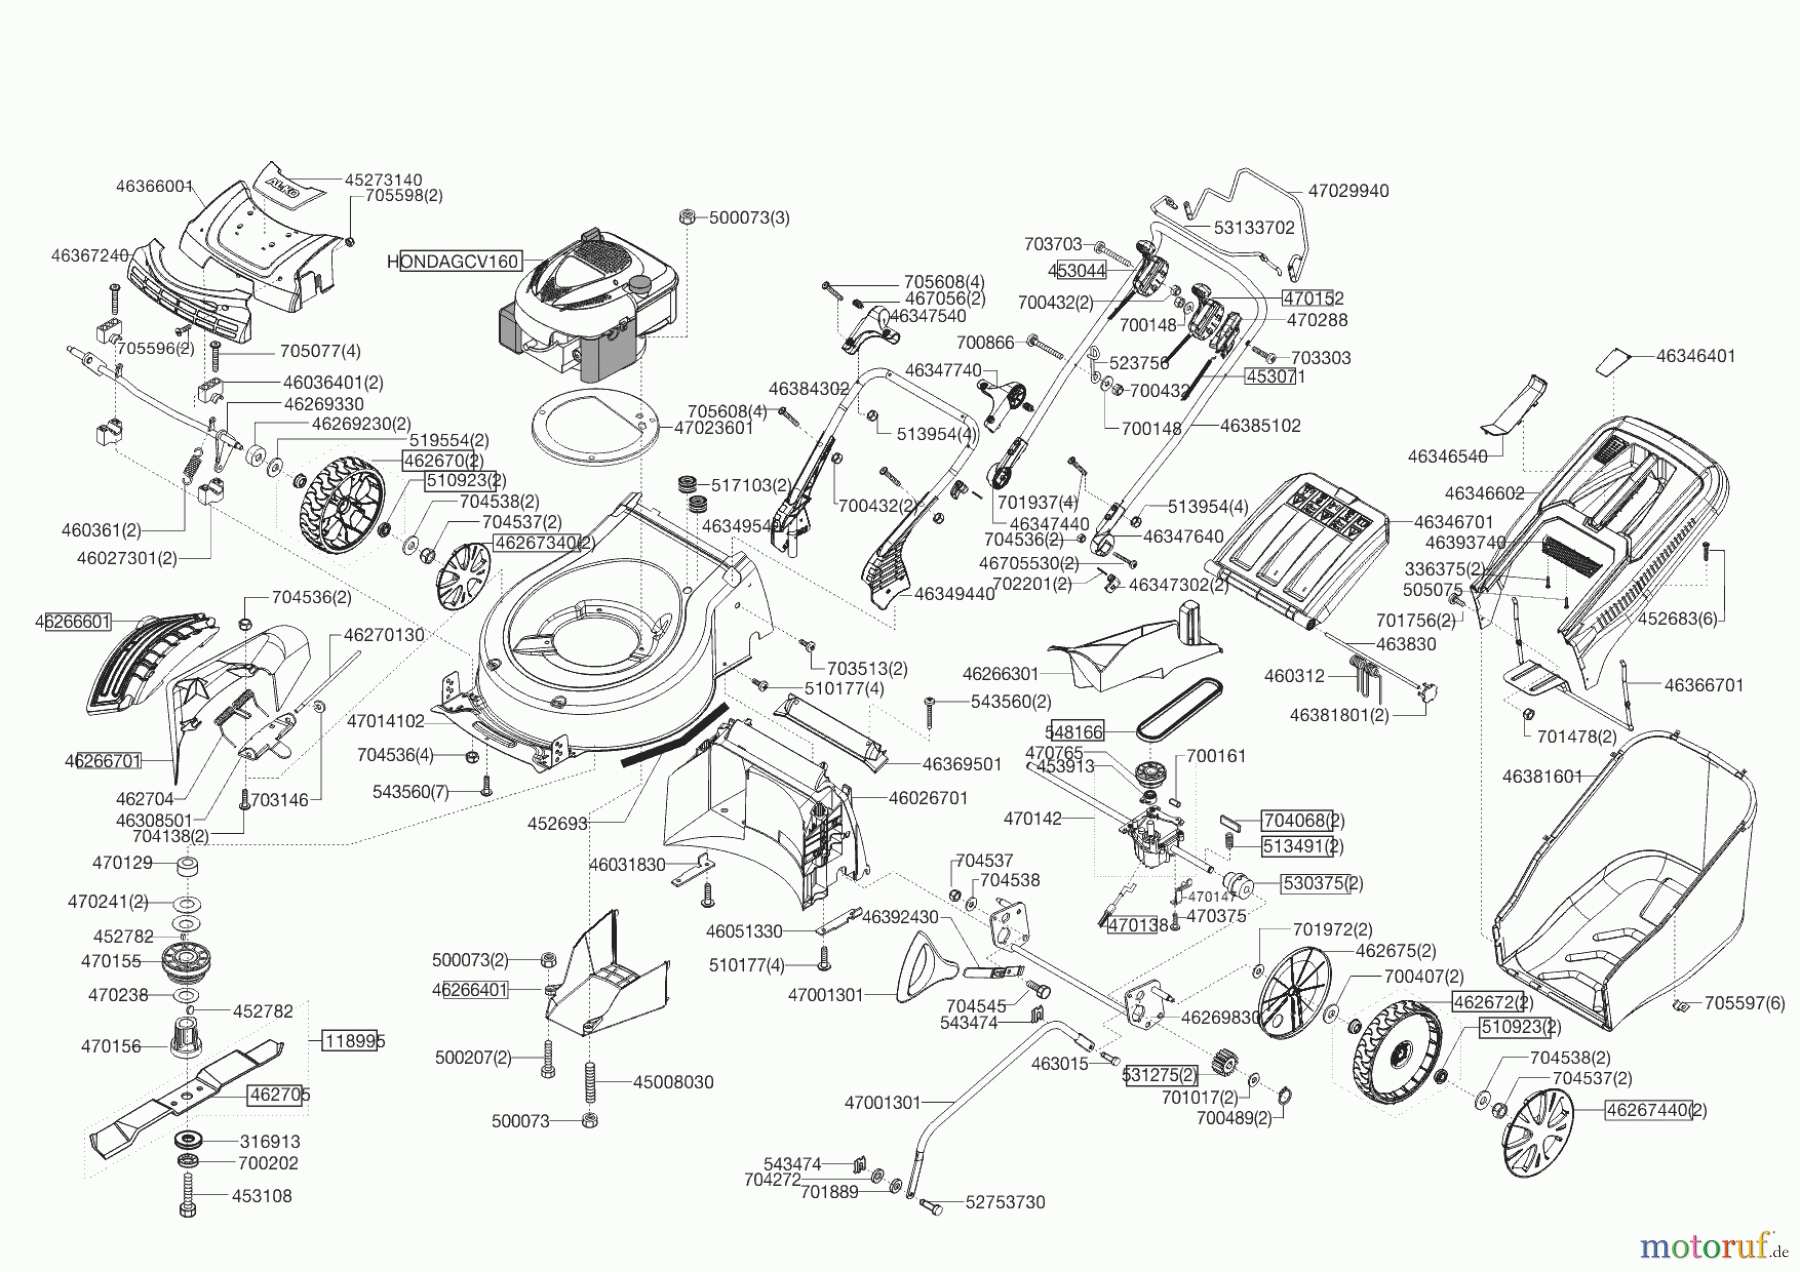 46366001
AL-KO
45273140
705598(2)
46367240
705596(2)
705077(4)
46036401(2)
46269330
46269230(2)
519554(2)
462670(2)
510923(2)
704538(2)
704537(2)
46267340(2)
460361(2)
46027301(2)
HONDAGCV160
500073(3)
47023601
517103(2)
46349540
705608(4)
467056(2)
46347540
46384302
705608(4)
513954(4)
700432(2)
46349440
47029940
53133702
703703
453044
700432(2)
470152
700148
470288
700866
523756
703303
453071
46347740
700432
700148
46385102
701937(4)
46347440
704536(2)
513954(4)
46347640
46705530(2)
702201(2)
46347302(2)
46346401
46346540
46346602
46346701
46393740
336375(2)
505075
701756(2)
452683(6)
463830
460312
46381801(2)
46366701
701478(2)
46381601
705597(6)
46266601
704536(2)
46270130
46266701
462704
46308501
704138(2)
703146
47014102
704536(4)
543560(7)
703513(2)
510177(4)
543560(2)
46369501
46026701
452693
46031830
46051330
510177(4)
46266301
548166
470765
453913
700161
470142
704068(2)
513491(2)
530375(2)
470147
470375
470138
470129
470241(2)
452782
470155
470238
452782
470156
118995
462705
316913
700202
453108
500073(2)
46266401
500207(2)
45008030
500073
704537
704538
46392430
47001301
704545
543474
463015
46269830
531275(2)
701017(2)
700489(2)
701972(2)
462675(2)
700407(2)
462672(2)
510923(2)
704538(2)
704537(2)
46267440(2)
47001301
543474
704272
701889
52753730
motoruf.de